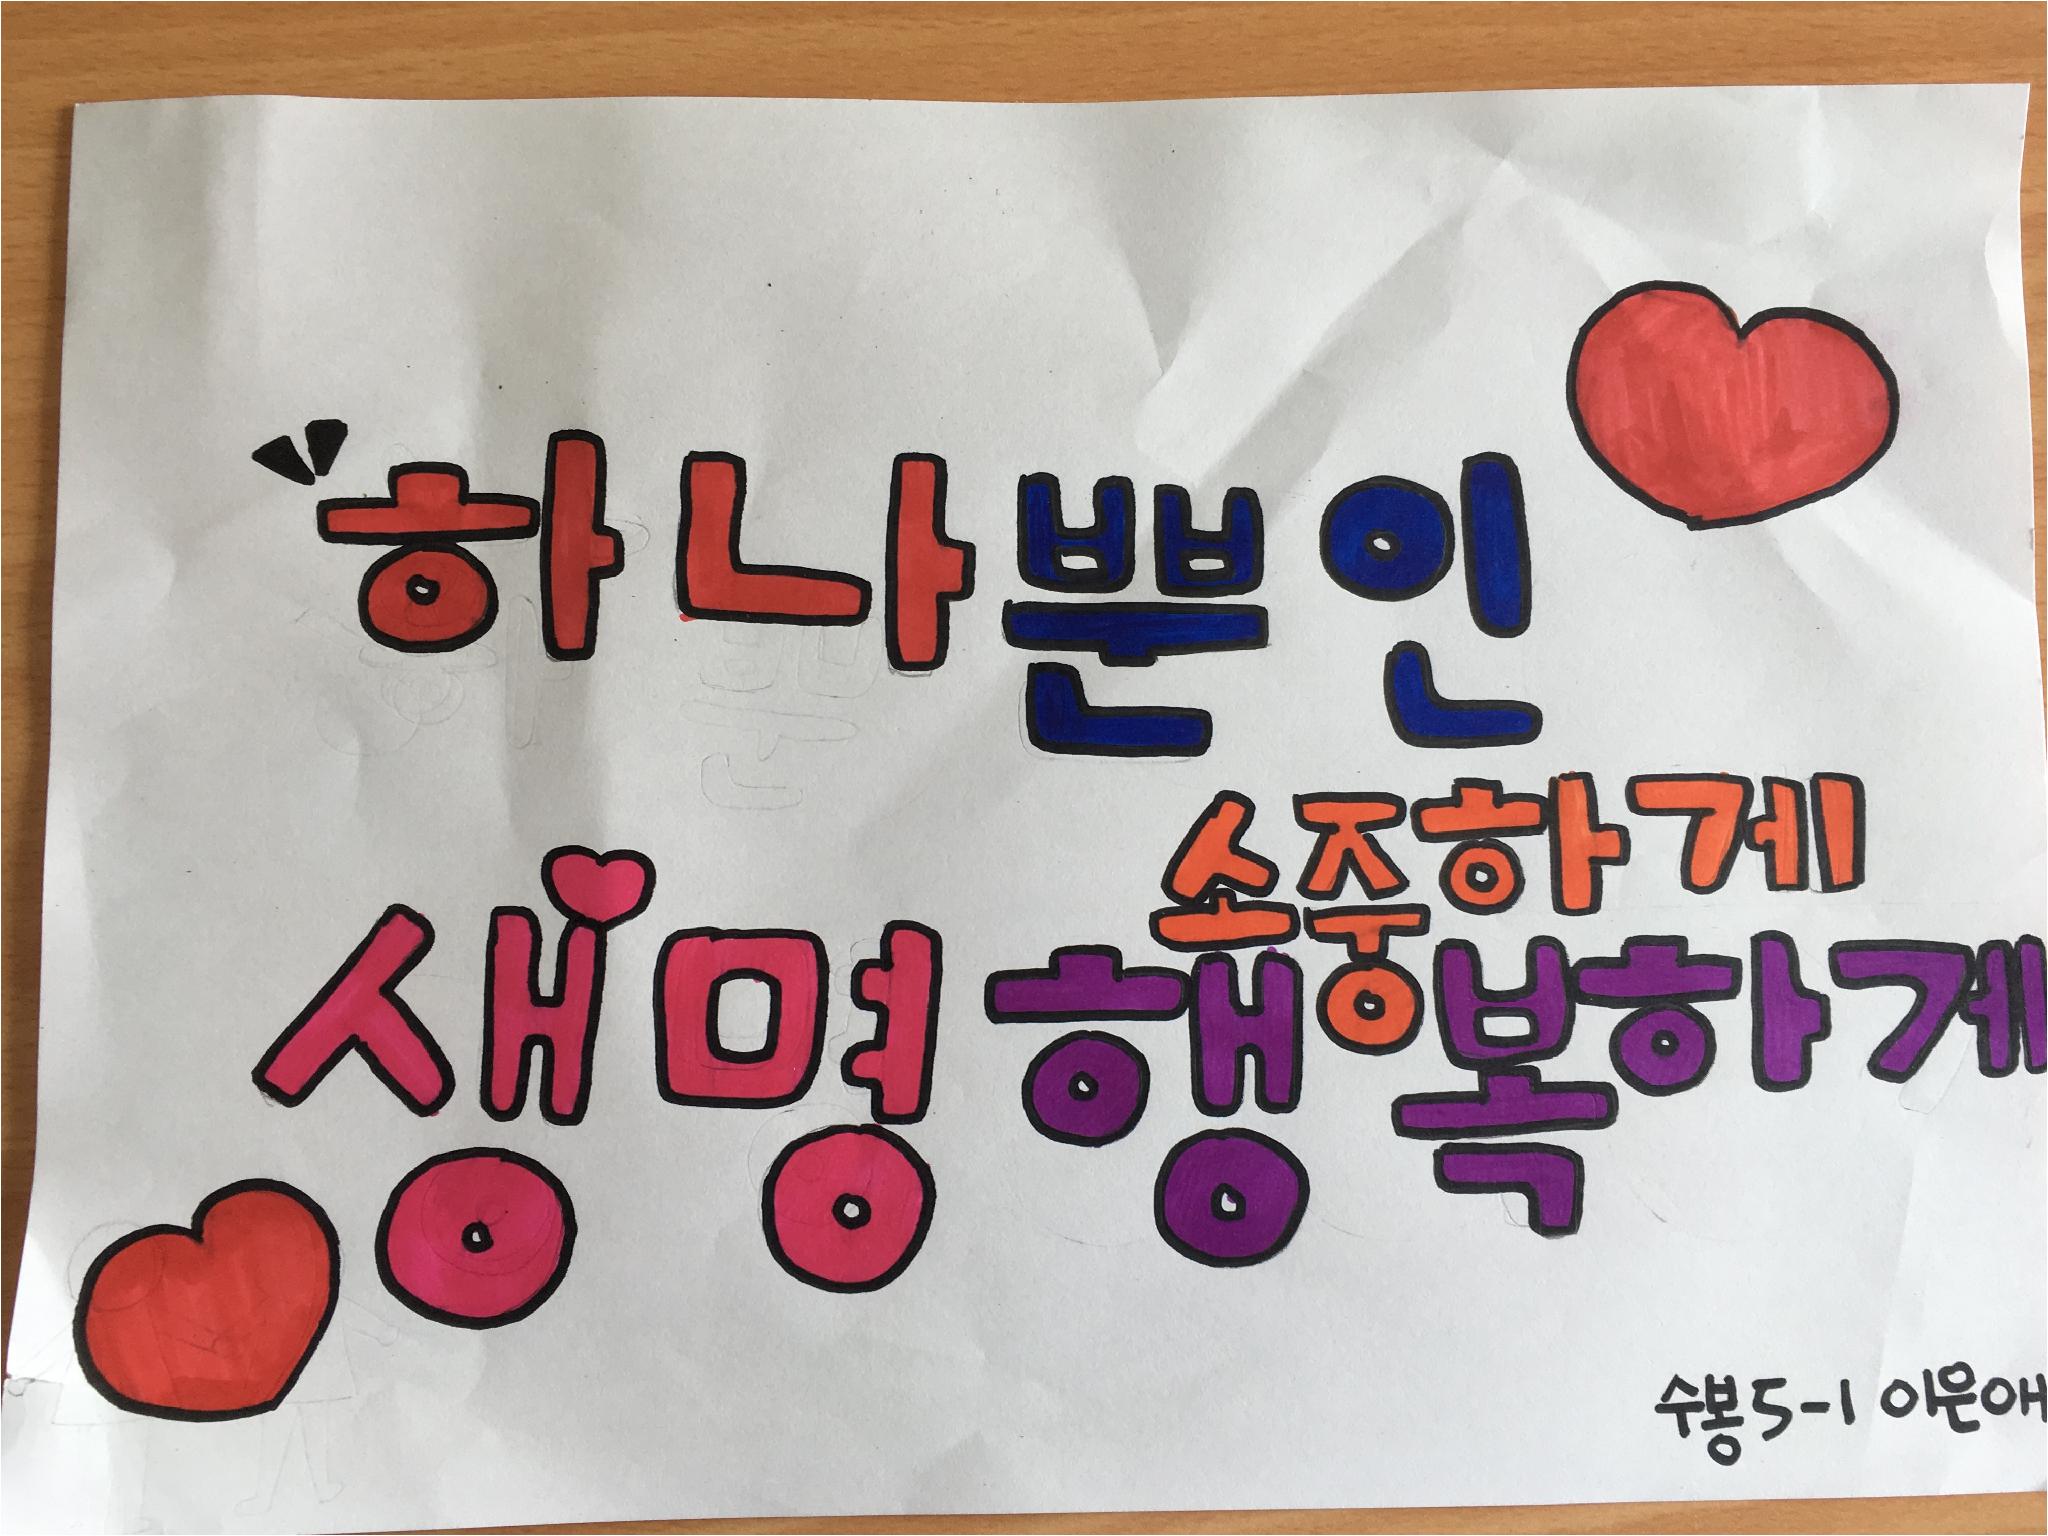 하나뿐인
소중하게
생명 행복하게
수봉 5-1 이은애